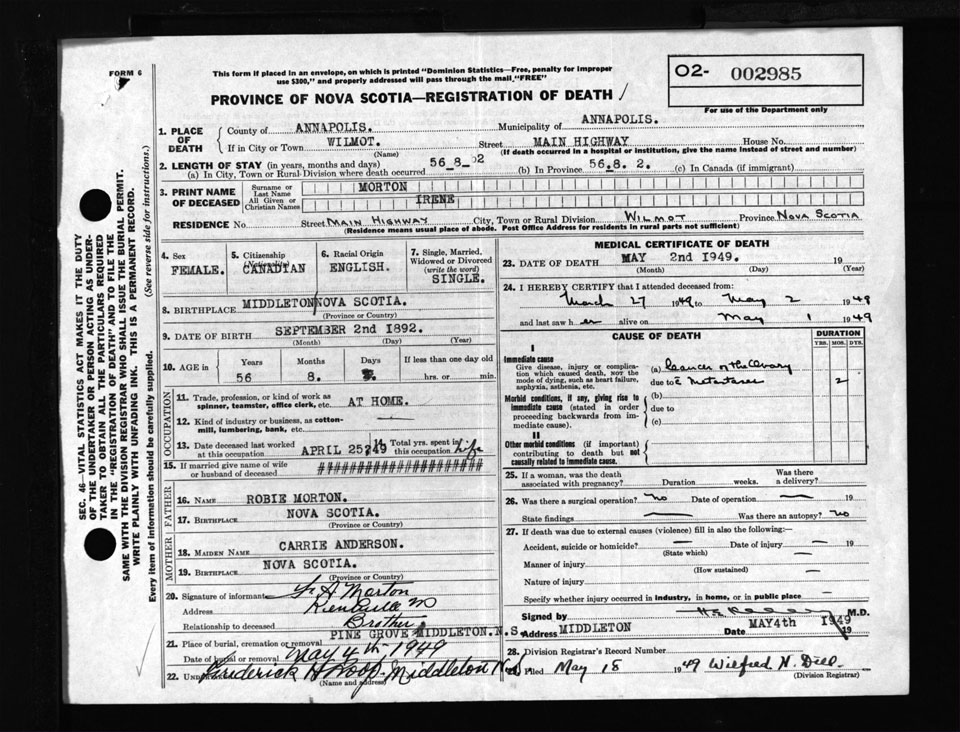 FORM 6
This form if placed in an envelope, on which is printed "Dominion Statistics—Free, penalty for improper
use $300," and properly addressed will pass through the mail, "FREE"
O2- 002985
For use of the Department only
PROVINCE OF NOVA SCOTIA—REGISTRATION OF DEATH
1. PLACE OF DEATH
County of ANNAPOLIS. Municipality of ANNAPOLIS.
If in City or Town WILMOT. Street MAIN HIGHWAY House No.
(Name) (If death occurred in a hospital or institution, give the name instead of street and number)
2. LENGTH OF STAY (in years, months and days)
(a) In City, Town or Rural Division where death occurred 56 8 02 (b) In Province 56.8. 2. (c) In Canada (if immigrant)
3. PRINT NAME OF DECEASED
Surname or Last Name MORTON
All Given or Christian Names IRENE
RESIDENCE No. Street MAIN HIGHWAY City, Town or Rural Division WILMOT Province NOVA SCOTIA
(Residence means usual place of abode. Post Office Address for residents in rural parts not sufficient)
4. Sex FEMALE.
5. Citizenship CANADIAN
6. Racial Origin ENGLISH.
7. Single, Married, Widowed or Divorced (write the word) SINGLE.
8. BIRTHPLACE MIDDLETON NOVA SCOTIA.
(Province or Country)
9. DATE OF BIRTH SEPTEMBER 2nd 1892.
(Month) (Day) (Year)
10. AGE in Years 56 Months 8. Days If less than one day old hrs. or min.
OCCUPATION
11. Trade, profession, or kind of work as spinner, teamster, office clerk, etc. AT HOME.
12. Kind of industry or business, as cotton-mill, lumbering, bank, etc. —
13. Date deceased last worked at this occupation APRIL 25 49
14 Total yrs. spent in this occupation life
15. If married give name of wife or husband of deceased ####################
FATHER
16. NAME ROBIE MORTON.
17. BIRTHPLACE NOVA SCOTIA.
(Province or Country)
MOTHER
18. MAIDEN NAME CARRIE ANDERSON.
19. BIRTHPLACE NOVA SCOTIA.
(Province or Country)
20. Signature of informant A Morton
Address
Relationship to deceased Brother
21. Place of burial, cremation or removal PINE GROVE MIDDLETON, N.S.
Date of burial or removal May 4th, 1949
22. Frederick Middleton N.S.
(Name and address)
MEDICAL CERTIFICATE OF DEATH
23. DATE OF DEATH MAY 2nd 1949. 19
(Month) (Day) (Year)
24. I HEREBY CERTIFY that I attended deceased from:
March 27 1949 to May 2 1949
and last saw her alive on May 1 1949
CAUSE OF DEATH DURATION
YRS. MOS. DYS.
I
Immediate cause
Give disease, injury or complication which caused death, NOT the mode of dying, such as heart failure, asphyxia, asthenia, etc.
(a) Cancer of the Ovary
due to 2
Morbid conditions, if any, giving rise to immediate cause (stated in order proceeding backwards from immediate cause).
(b)
due to
(c)
II
Other morbid conditions (if important) contributing to death but not causally related to immediate cause.
25. If a woman, was the death associated with pregnancy? Duration weeks. Was there a delivery?
26. Was there a surgical operation? no Date of operation — 19
State findings — Was there an autopsy? no
27. If death was due to external causes (violence) fill in also the following:—
Accident, suicide or homicide? — Date of injury — 19
(State which)
Manner of injury —
(How sustained)
Nature of injury
Specify whether injury occurred in industry, in home, or in public place —
Signed by M.D.
Address MIDDLETON Date MAY4th 1949
19
28. Division Registrar's Record Number
Filed May 18 1949 Wilfred N. Dill.
(Division Registrar)
SEC. 46—VITAL STATISTICS ACT MAKES IT THE DUTY
OF THE UNDERTAKER OR PERSON ACTING AS UNDER-
TAKER TO OBTAIN ALL THE PARTICULARS REQUIRED
IN THE "REGISTRATION OF DEATH" AND TO FILE THE
SAME WITH THE DIVISION REGISTRAR WHO SHALL ISSUE THE BURIAL PERMIT.
WRITE PLAINLY WITH UNFADING INK. THIS IS A PERMANENT RECORD.
Every item of information should be carefully supplied. (See reverse side for instructions.)